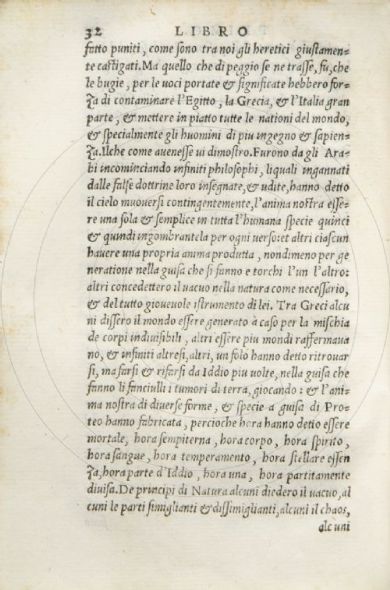 32 LIBRO
fatto puniti, come sono tra noi gli heretici giustamen-
te castigati. Ma quello che di peggio se ne trasse, fu, che
le bugie, per le uoci portate & significate hebbero for-
za di contaminare l'Egitto, la Grecia, & l'Italia gran
parte, & mettere in piatto tutte le nationi del mondo,
& specialmente gli huomini di piu ingegno & sapien-
za. Ilche come auenesse ui dimostro. Furono da gli Ara-
bi incominciando infiniti philosophi, liquali ingannati
dalle false dottrine loro insegnate, & udite, hanno detto
il cielo muouersi contingentemente, l'anima nostra esse-
re una sola & semplice in tutta l'humana specie quinci
& quindi ingombrantela per ogni uerso: et altri ciascun
hauere una propria anima produtta, nondimeno per ge
neratione nella guisa che si fanno e torchi l'un l'altro:
altri concedettero il uacuo nella natura come necessario,
& del tutto gioueuole istrumento di lei. Tra Greci alcu
ni dissero il mondo essere generato à caso per la mischia
de corpi indiuisibili, altri essere piu mondi raffermaua
no, & infiniti altresi, altri, un solo hanno detto ritrouar
si, ma farsi & rifarsi da Iddio piu uolte, nella guisa che
fanno li fanciulli i tumori di terra, giocando: & l'ani-
ma nostra di diuerse forme, & specie a guisa di Pro-
teo hanno fabricata, percioche hora hanno detto essere
mortale, hora sempiterna, hora corpo, hora spirito,
hora sangue, hora temperamento, hora stellare essen
za, hora parte d'Iddio, hora una, hora partitamente
diuisa. De principi di Natura alcuni diedero il uacuo, al
cuni le parti simiglianti & dissimiglianti, alcuni il chaos,
alcuni